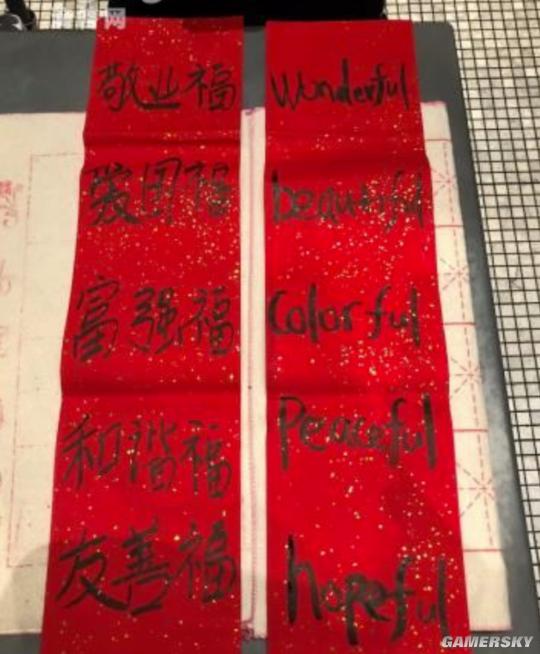 敬业福
爱国福
富强福
和谐福
友善福
Wonderful
beautiful
Colorful
Peaceful
hopeful
GAMERSKY